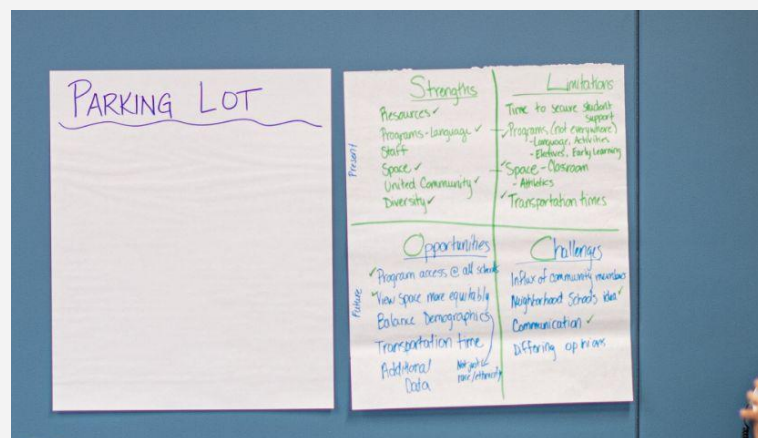 PARKING LOT
Strengths
Present
Resources ✓
Programs-Language ✓
Staff
Space ✓
United Community ✓
Diversity ✓
Limitations
Time to secure student
support
✓ Programs (not everywhere)
- Language, Activities
- Electives, Early Learning
✓ Space - Classroom
- Athletics
✓ Transportation times
Opportunities
✓ Program access @ all schools
✓ View space more equitably
Balance Demographics
Transportation time
Additional
Data
Not just
race/ethnicity
Challenges
Influx of community members
Neighborhood Schools idea ✓
Communication ✓
Differing opinions